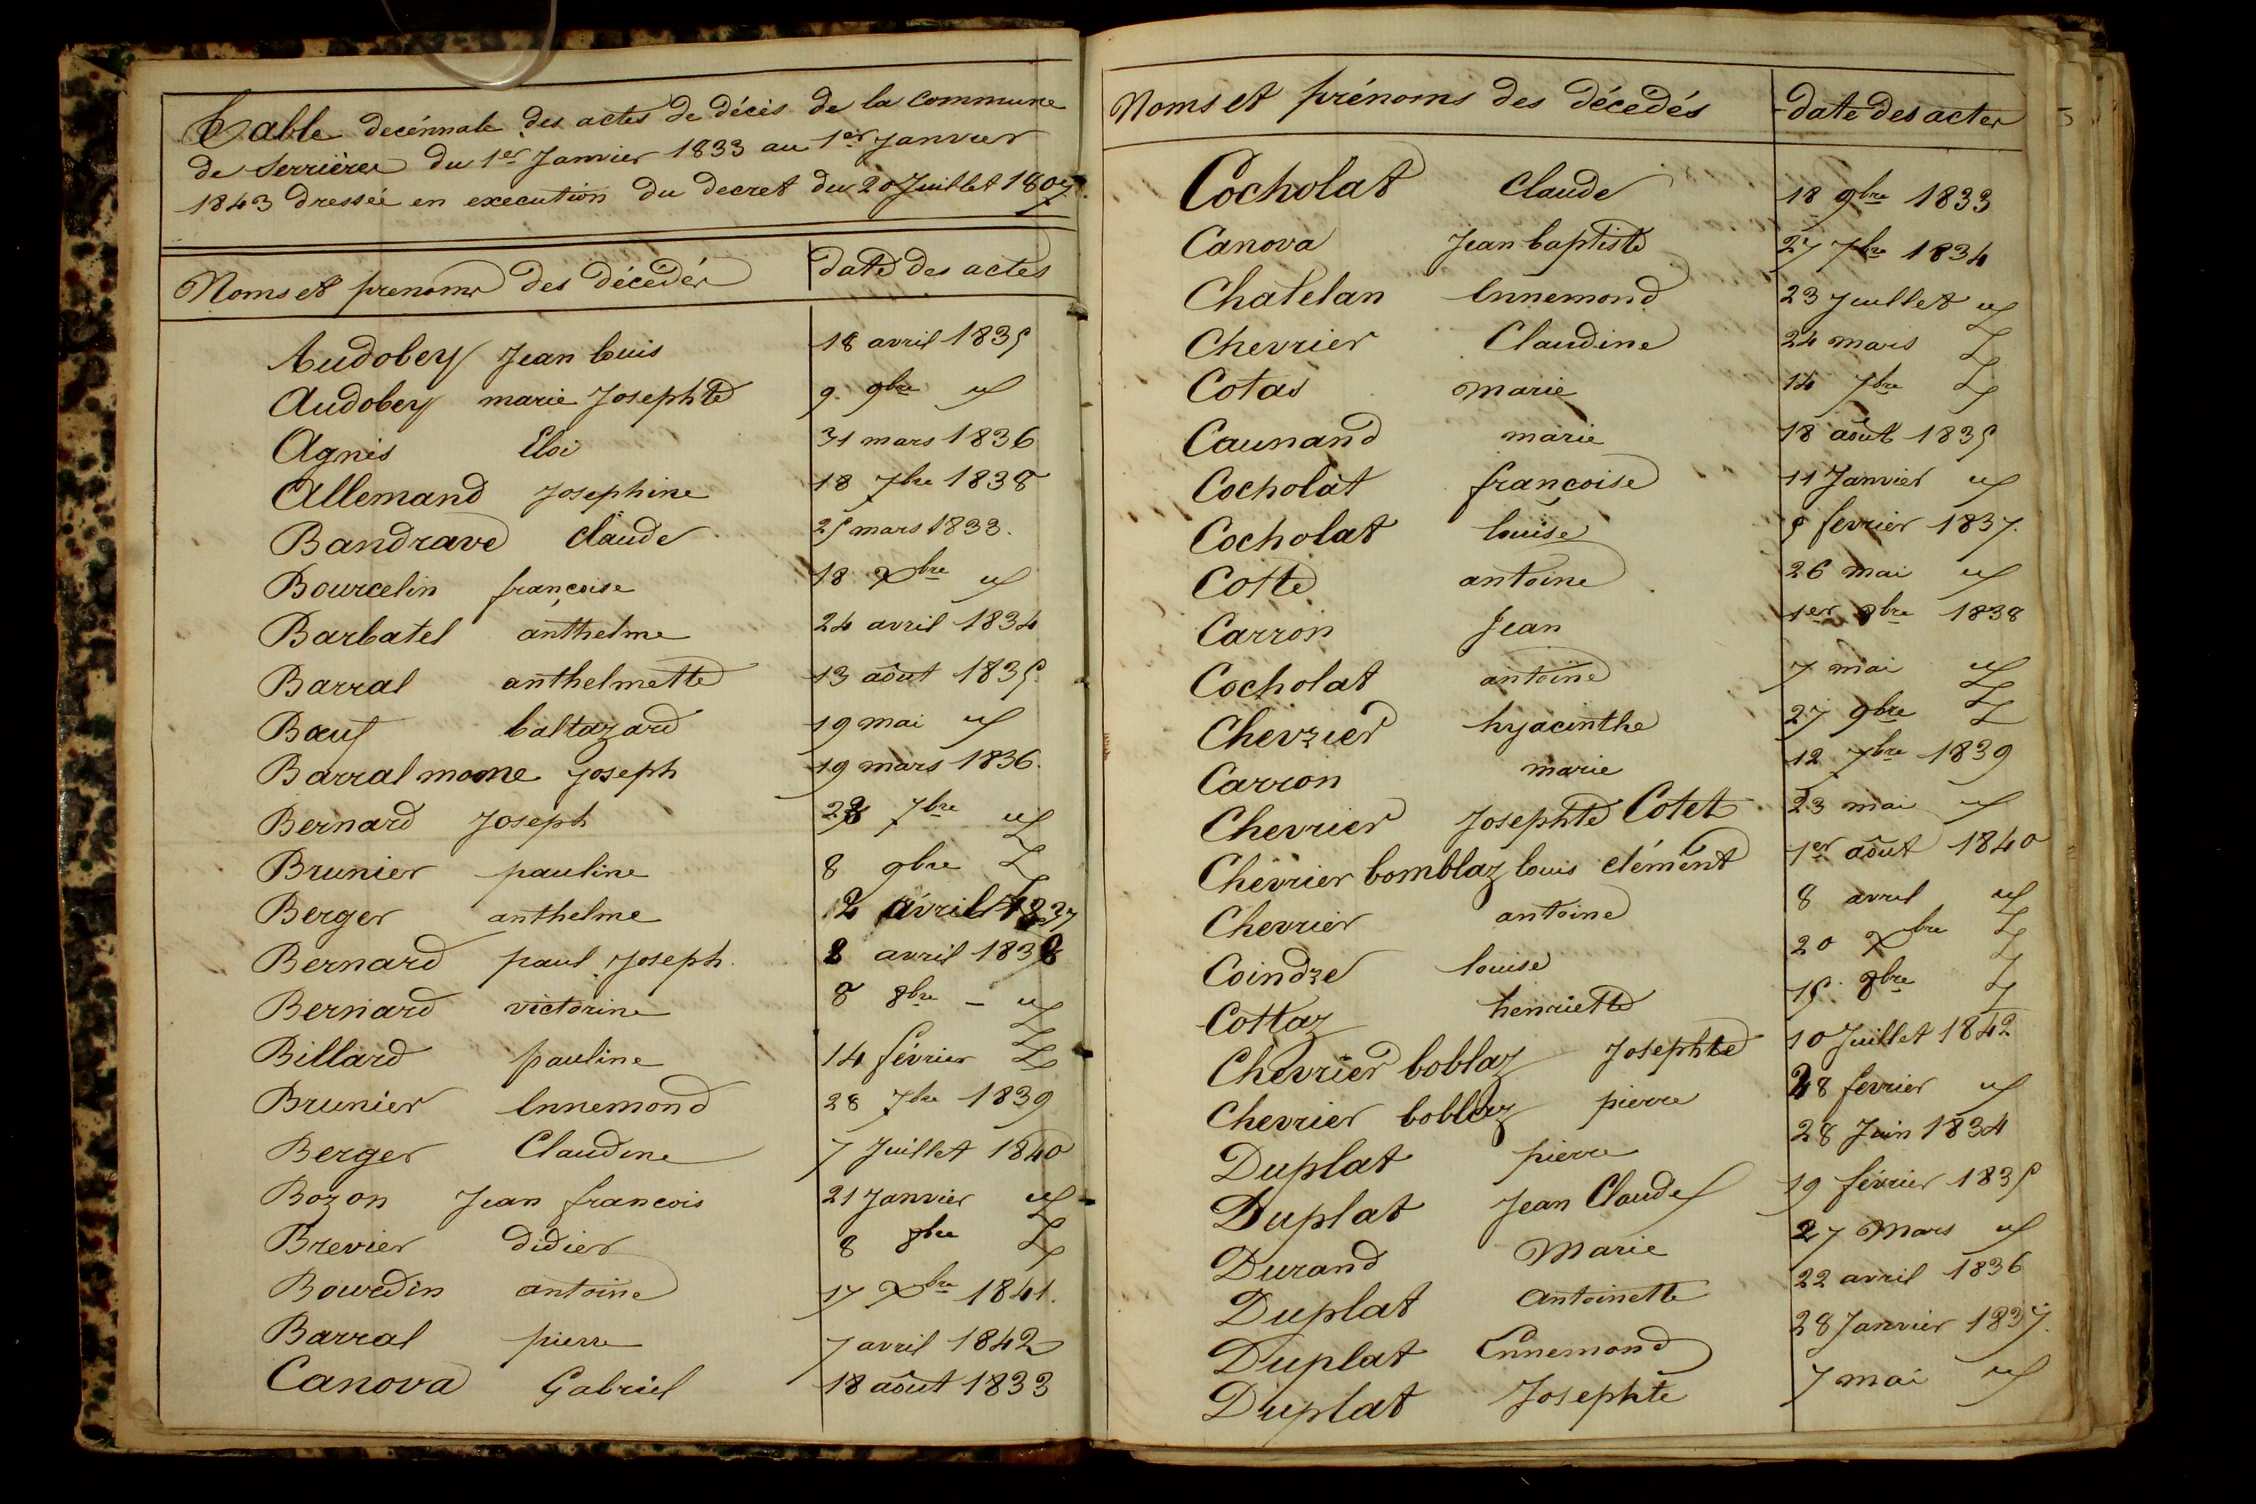 Table decénnale des actes de décès de la commune
de Serrières du 1er Janvier 1833 au 1er Janvier
1843 dressée en execution du decret du 20 Juillet 1807
Noms et prenoms des décédés date des actes
Audobey Jean Louis 18 avril 1835
Audobey marie Josephte 9 9bre id
Agnis Eloi 31 mars 1836
Allemand Josephine 18 7bre 1838
Bandrave Claude 25 mars 1833.
Bourcelin françoise 18 Xbre id
Barbatel anthelme 24 avril 1834
Barral anthelmette 13 août 1835
Bœuf baltazard 19 mai id
Barral moone Joseph 19 mars 1836.
Bernard Joseph 7bre id
Brunier pauline 8 9bre id
Berger anthelme 12 avril 1837
Bernard paul Joseph. 8 avril 1838
Bernard victorine 8 8bre - id
Billard pauline 14 février id
Brunier Ennemond 28 7bre 1839
Berger Claudine 7 Juillet 1840
Bozon Jean francois 21 Janvier id
Brevier didier 8 8bre id
Bourdin antoine 17 Xbre 1841.
Barral pierre 7 avril 1842
Canova Gabriel 18 août 1833
Noms et prénoms des décédés date des actes 5
Cocholat Claude 18 9bre 1833
Canova Jean baptiste 27 7bre 1834
Chatelan Ennemond 23 Juillet id
Chevrier Claudine 24 mars id
Cotas marie 14 7bre id
Caunand marie 18 août 1835
Cocholat françoise 11 Janvier id
Cocholat louise 5 fevrier 1837.
Cotte antoine 26 mai id
Carron Jean 1er 8bre 1838
Cocholat antoine 7 mai id
Chevrier hyacinthe 27 9bre id
Carron marie 12 7bre 1839
Chevrier Josephte Cotet 23 mai id
Chevrier bomblaz louis clément 1er août 1840
Chevrier antoine 8 avril id
Coindre louise 20 Xbre id
Cottaz henriette 15 8bre id
Chevrier boblaz Josephte 10 Juillet 1842
Chevrier boblaz pierre 28 fevrier id
Duplat pierre 28 Juin 1834
Duplat Jean Claude 19 février 1835
Durand Marie 27 Mars id
Duplat Antoinette 22 avril 1836
Duplat Ennemond 28 Janvier 1837.
Duplat Josephte 7 mai id